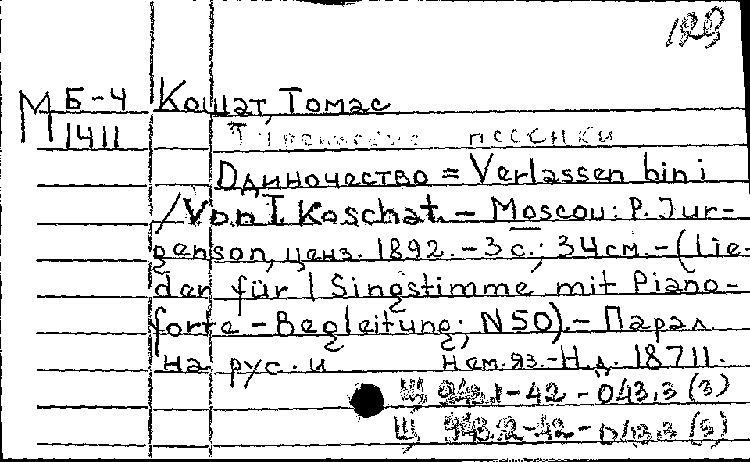 189
М Б-4 Кошат, Томас
1411 Тирольские песенки
Одиночество = Verlassen bin i
/Von T. Koschat. – Moscou: P. Jur-
genson, ценз. 1892. – 3 с.; 34 см. – (Lie-
der für 1 Singstimme mit Piano-
forte – Begleitung; N 50). – Парал.
на рус. и нем. яз. – Н.д. 18711.
Щ 943.1-42-043.3 (3)
Щ 943.2-42-043.3 (3)